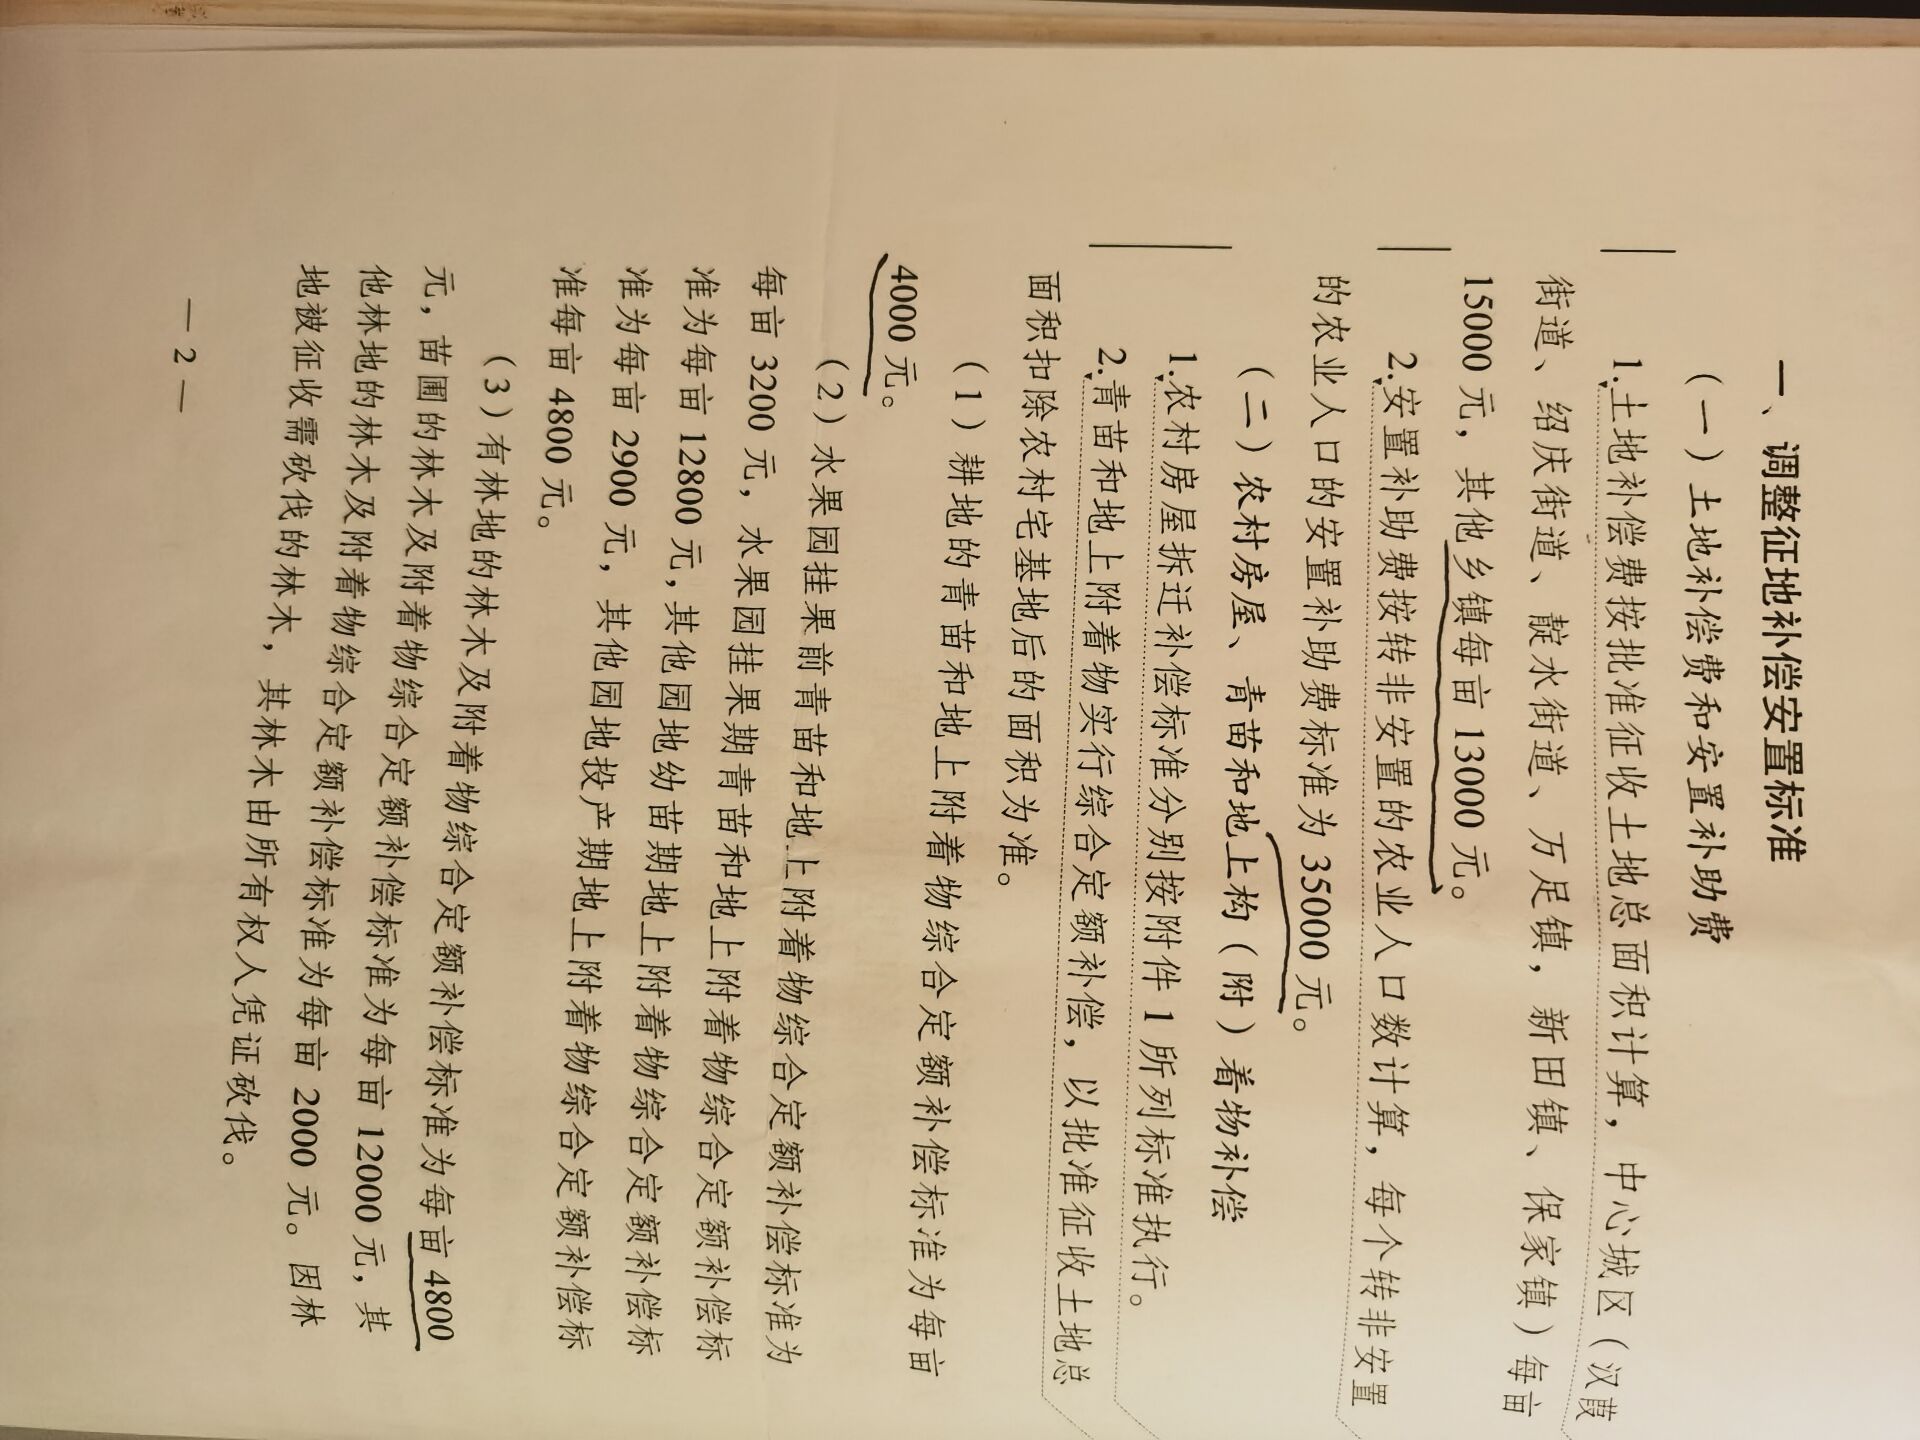 一、调整征地补偿安置标准
（一）土地补偿费和安置补助费
1.土地补偿费按批准征收土地总面积计算，中心城区（汉葭
街道、绍庆街道、靛水街道、万足镇，新田镇、保家镇）每亩
15000 元，其他乡镇每亩 13000 元。
2.安置补助费按转非安置的农业人口数计算，每个转非安置
的农业人口的安置补助费标准为 35000 元。
（二）农村房屋、青苗和地上构（附）着物补偿
1.农村房屋拆迁补偿标准分别按附件 1 所列标准执行。
2.青苗和地上附着物实行综合定额补偿，以批准征收土地总
面积扣除农村宅基地后的面积为准。
（1）耕地的青苗和地上附着物综合定额补偿标准为每亩
4000 元。
（2）水果园挂果前青苗和地上附着物综合定额补偿标准为
每亩 3200 元，水果园挂果期青苗和地上附着物综合定额补偿标
准为每亩 12800 元，其他园地幼苗期地上附着物综合定额补偿标
准为每亩 2900 元，其他园地投产期地上附着物综合定额补偿标
准每亩 4800 元。
（3）有林地的林木及附着物综合定额补偿标准为每亩 4800
元，苗圃的林木及附着物综合定额补偿标准为每亩 12000 元，其
他林地的林木及附着物综合定额补偿标准为每亩 2000 元。因林
地被征收需砍伐的林木，其林木由所有权人凭证砍伐。
— 2 —